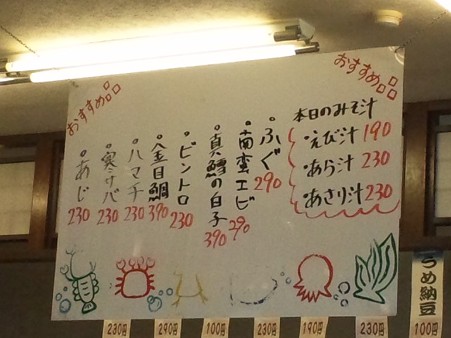 おすすめ品
おすすめ品
本日のみそ汁
・えび汁 190
・あら汁 230
・あさり汁 230
・ふぐ 290
・南蛮エビ 290
・真鱈の白子 390
・ビントロ 230
・金目鯛 390
・ハマチ 230
・寒サバ 230
・あじ 230
230円
290円
100円
230円
190円
230円
らめ納豆
100円